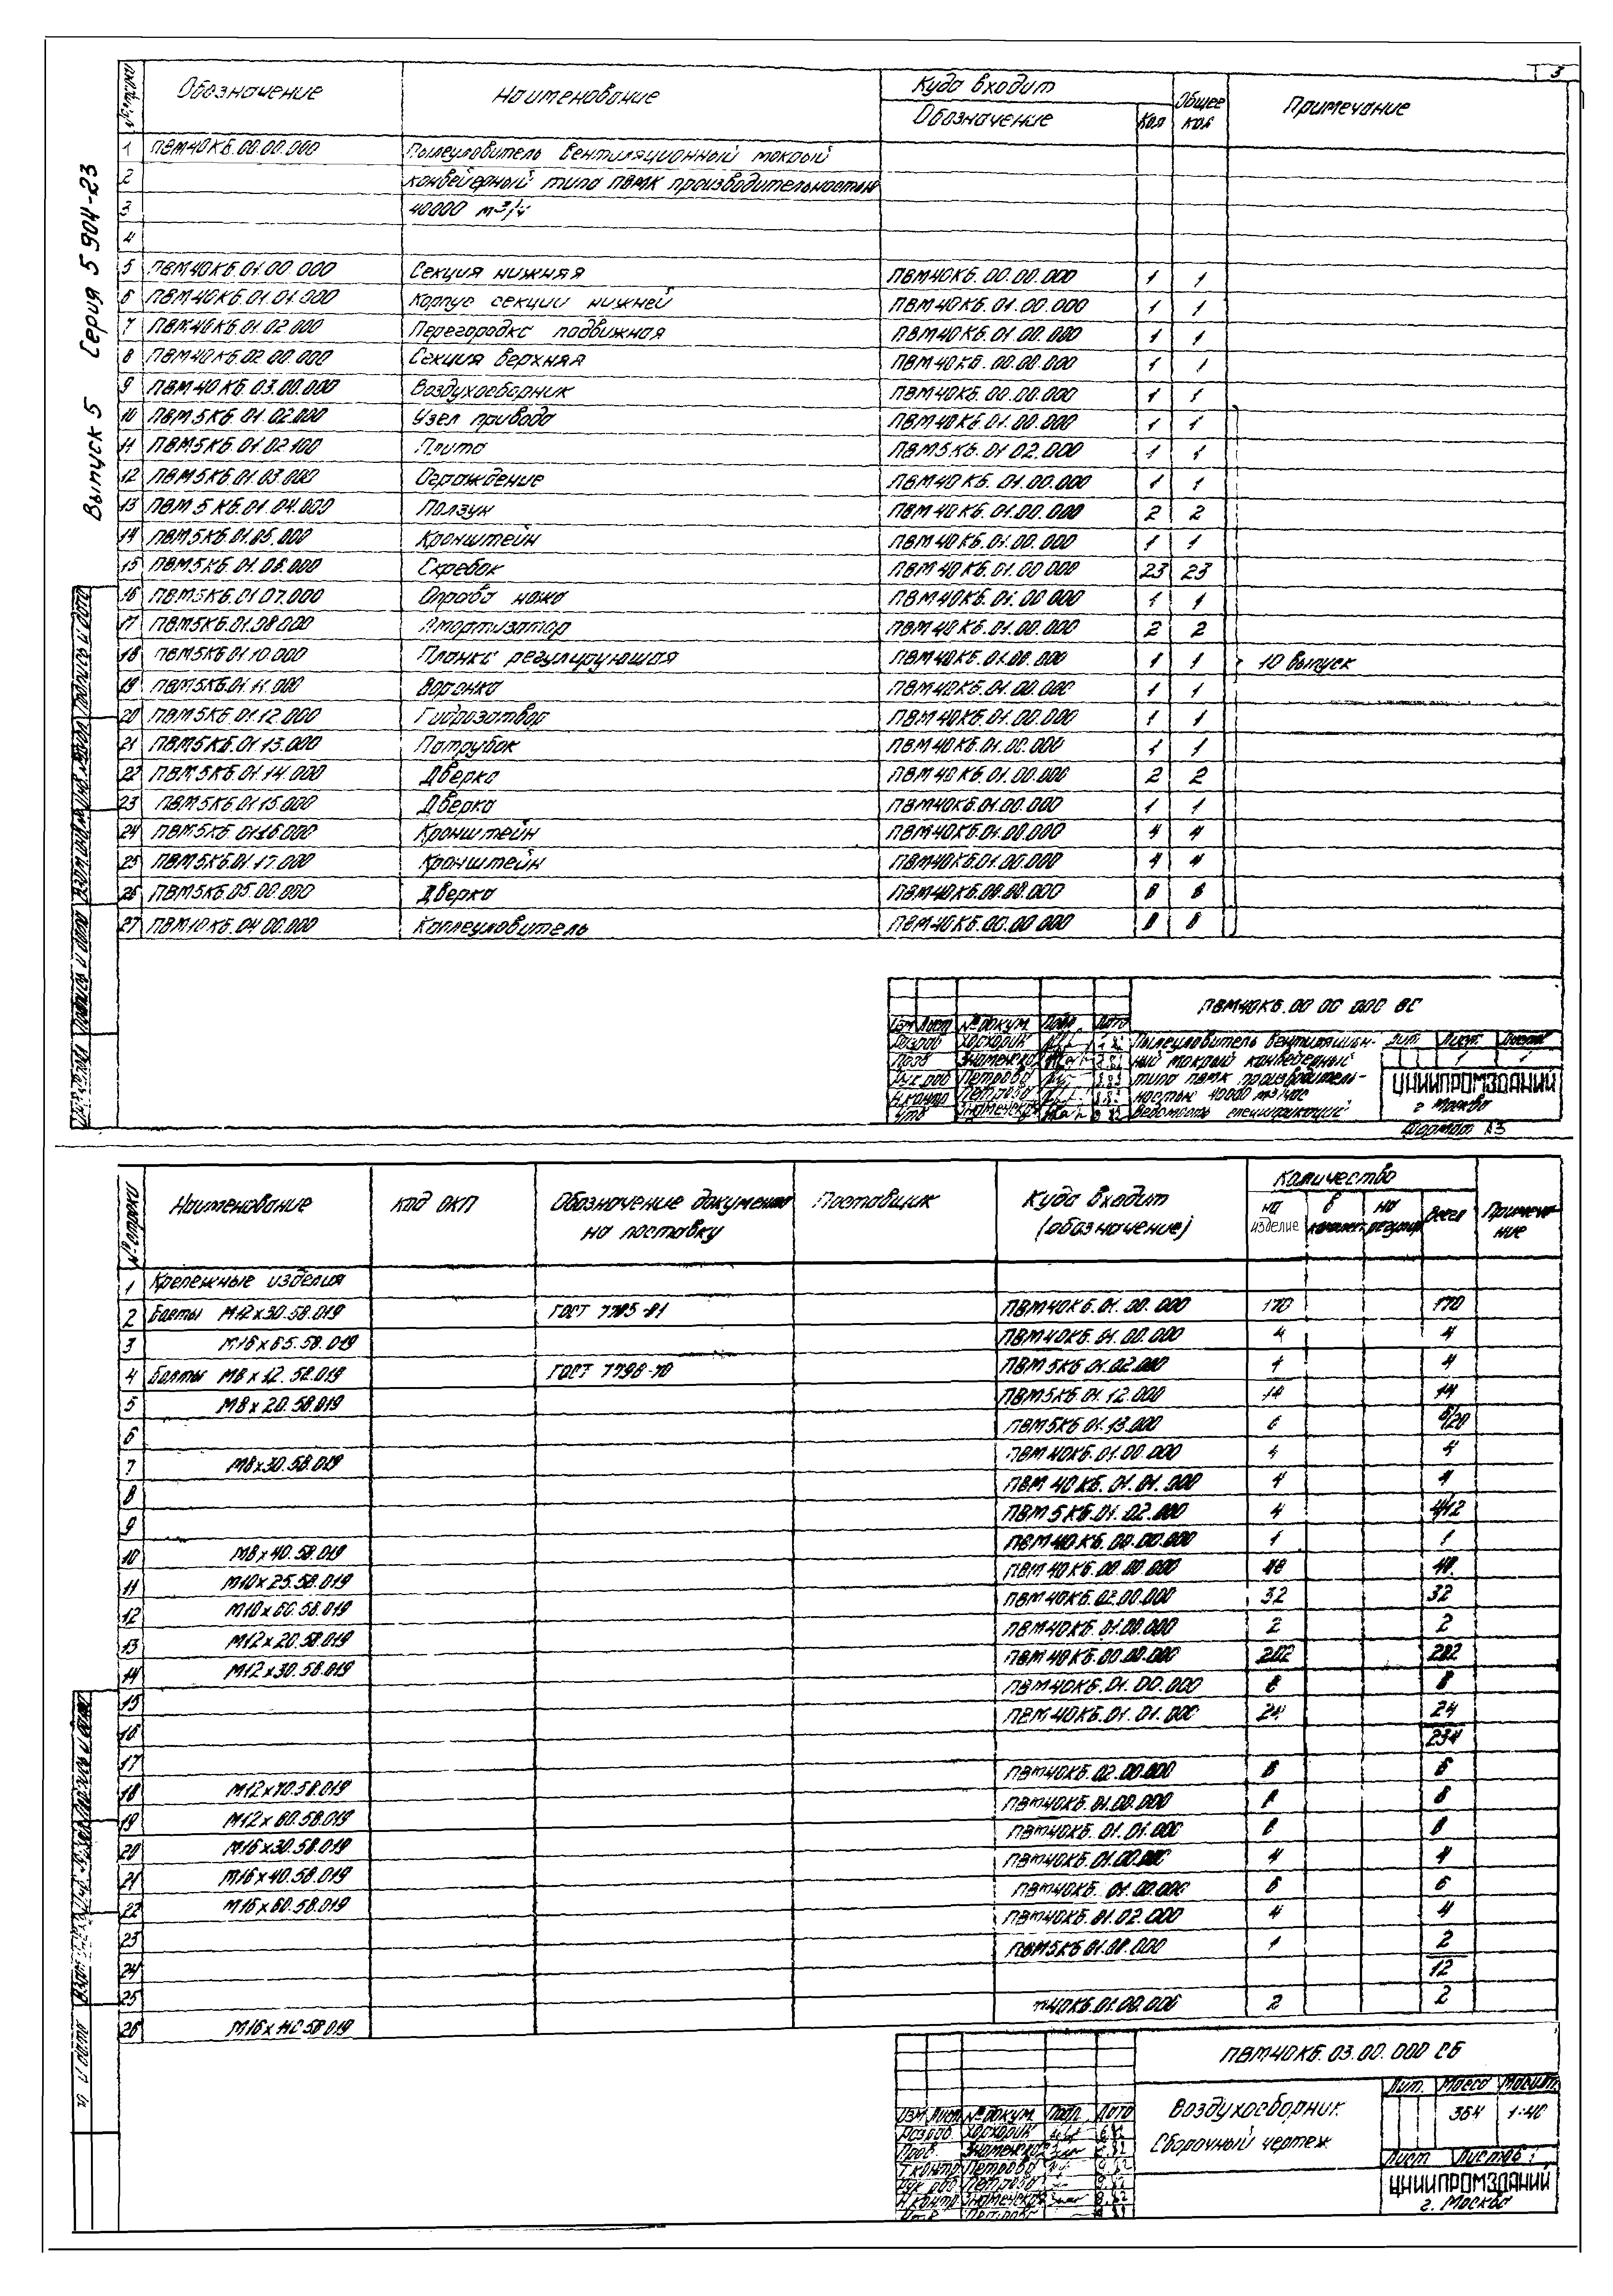 3
Выпуск 5 Серия 5 904-23
№ строки Обозначение Наименование Куда входит Общее кол Примечание
Обозначение Кол
1 ПВМ40КБ.00.00.000 Пылеуловитель вентиляционный мокрый
2 конвейерный типа ПВМК производительностью
3 40000 м³/ч
4
5 ПВМ40КБ.01.00.000 Секция нижняя ПВМ40КБ.00.00.000 1 1
6 ПВМ40КБ.01.01.000 Корпус секции нижней ПВМ40КБ.01.00.000 1 1
7 ПВМ40КБ.01.02.000 Перегородка подвижная ПВМ40КБ.01.00.000 1 1
8 ПВМ40КБ.02.00.000 Секция верхняя ПВМ40КБ.00.00.000 1 1
9 ПВМ40КБ.03.00.000 Воздухосборник ПВМ40КБ.00.00.000 1 1
10 ПВМ5КБ.01.02.000 Узел привода ПВМ40КБ.01.00.000 1 1
11 ПВМ5КБ.01.02.100 Плита ПВМ5КБ.01.02.000 1 1
12 ПВМ5КБ.01.03.000 Ограждение ПВМ40КБ.01.00.000 1 1
13 ПВМ5КБ.01.04.000 Ползун ПВМ40КБ.01.00.000 2 2
14 ПВМ5КБ.01.05.000 Кронштейн ПВМ40КБ.01.00.000 1 1
15 ПВМ5КБ.01.06.000 Скребок ПВМ40КБ.01.00.000 23 23
16 ПВМ5КБ.01.07.000 Оправа ножа ПВМ40КБ.01.00.000 1 1
17 ПВМ5КБ.01.08.000 Амортизатор ПВМ40КБ.01.00.000 2 2
18 ПВМ5КБ.01.10.000 Планка регулирующая ПВМ40КБ.01.00.000 1 1 10 выпуск
19 ПВМ5КБ.01.11.000 Воронка ПВМ40КБ.01.00.000 1 1
20 ПВМ5КБ.01.12.000 Гидрозатвор ПВМ40КБ.01.00.000 1 1
21 ПВМ5КБ.01.13.000 Патрубок ПВМ40КБ.01.00.000 1 1
22 ПВМ5КБ.01.14.000 Дверка ПВМ40КБ.01.00.000 2 2
23 ПВМ5КБ.01.15.000 Дверка ПВМ40КБ.01.00.000 1 1
24 ПВМ5КБ.01.16.000 Кронштейн ПВМ40КБ.01.00.000 4 4
25 ПВМ5КБ.01.17.000 Кронштейн ПВМ40КБ.01.00.000 4 4
26 ПВМ5КБ.05.00.000 Дверка ПВМ40КБ.00.00.000
27 ПВМ10КБ.04.00.000 Каплеуловитель ПВМ40КБ.00.00.000 8 8
ПВМ40КБ.00.00.000 ВС
Изм Лист № докум. Подп. Дата
Разраб Хорхорик
Пров Знаменская
Рук раб Петрова
Н.контр Петрова
Утв Знаменская
Пылеуловитель вентиляцион-
ный мокрый конвейерный
типа ПВМК производитель-
ностью 40000 м³/час
Ведомость спецификаций
Лит. Лист Листов
1 1
ЦНИИПРОМЗДАНИЙ
г Москва
Формат А3
№ строки Наименование Код ОКП Обозначение документа на поставку Поставщик Куда входит (обозначение) Количество Примеча-ние
на изделие в комплект на регулир Всего
1 Крепежные изделия
2 Болты М12х30.58.019 ГОСТ 7795-81 ПВМ40КБ.01.00.000 170 170
3 М16х65.58.019 ПВМ40КБ.01.00.000 4 4
4 Болты М6х12.58.019 ГОСТ 7796-70 ПВМ5КБ.01.02.000 4 4
5 М8х20.58.019 ПВМ5КБ.01.12.000 14 14
6 ПВМ5КБ.01.13.000 6 6/20
7 М8х30.58.019 ПВМ40КБ.01.00.000 4 4
8 ПВМ40КБ.01.01.000 4 4
9 ПВМ5КБ.01.02.000 4 4/12
10 М8х40.58.019 ПВМ40КБ.00.00.000 1 1
11 М10х25.58.019 ПВМ40КБ.00.00.000
12 М10х60.58.019 ПВМ40КБ.02.00.000 32 32
13 М12х20.58.019 ПВМ40КБ.01.00.000 2 2
14 М12х30.58.019 ПВМ40КБ.00.00.000 202 202
15 ПВМ40КБ.01.00.000 8 8
16 ПВМ40КБ.01.01.000 24 24
17 234
18 М12х70.58.019 ПВМ40КБ.02.00.000
19 М12х80.58.019 ПВМ40КБ.01.00.000
20 М16х30.58.019 ПВМ40КБ.01.01.000 8 8
21 М16х40.58.019 ПВМ40КБ.01.00.000 4 4
22 М16х60.58.019 ПВМ40КБ.01.00.000 6 6
23 ПВМ40КБ.01.02.000 4 4
24 ПВМ5КБ.01.08.000 1 2
25 12
26 М16х110.58.019 2 2
ПВМ40КБ.03.00.000 СБ
Изм Лист № докум. Подп. Дата
Разраб Хорхорик
Пров. Знаменская
Т контр Петрова
Рук раб Петрова
Н контр Знаменская
Воздухосборник
Сборочный чертеж
Лит. Масса Масшт.
364 1:40
Лист Листов 1
ЦНИИПРОМЗДАНИЙ
г. Москва